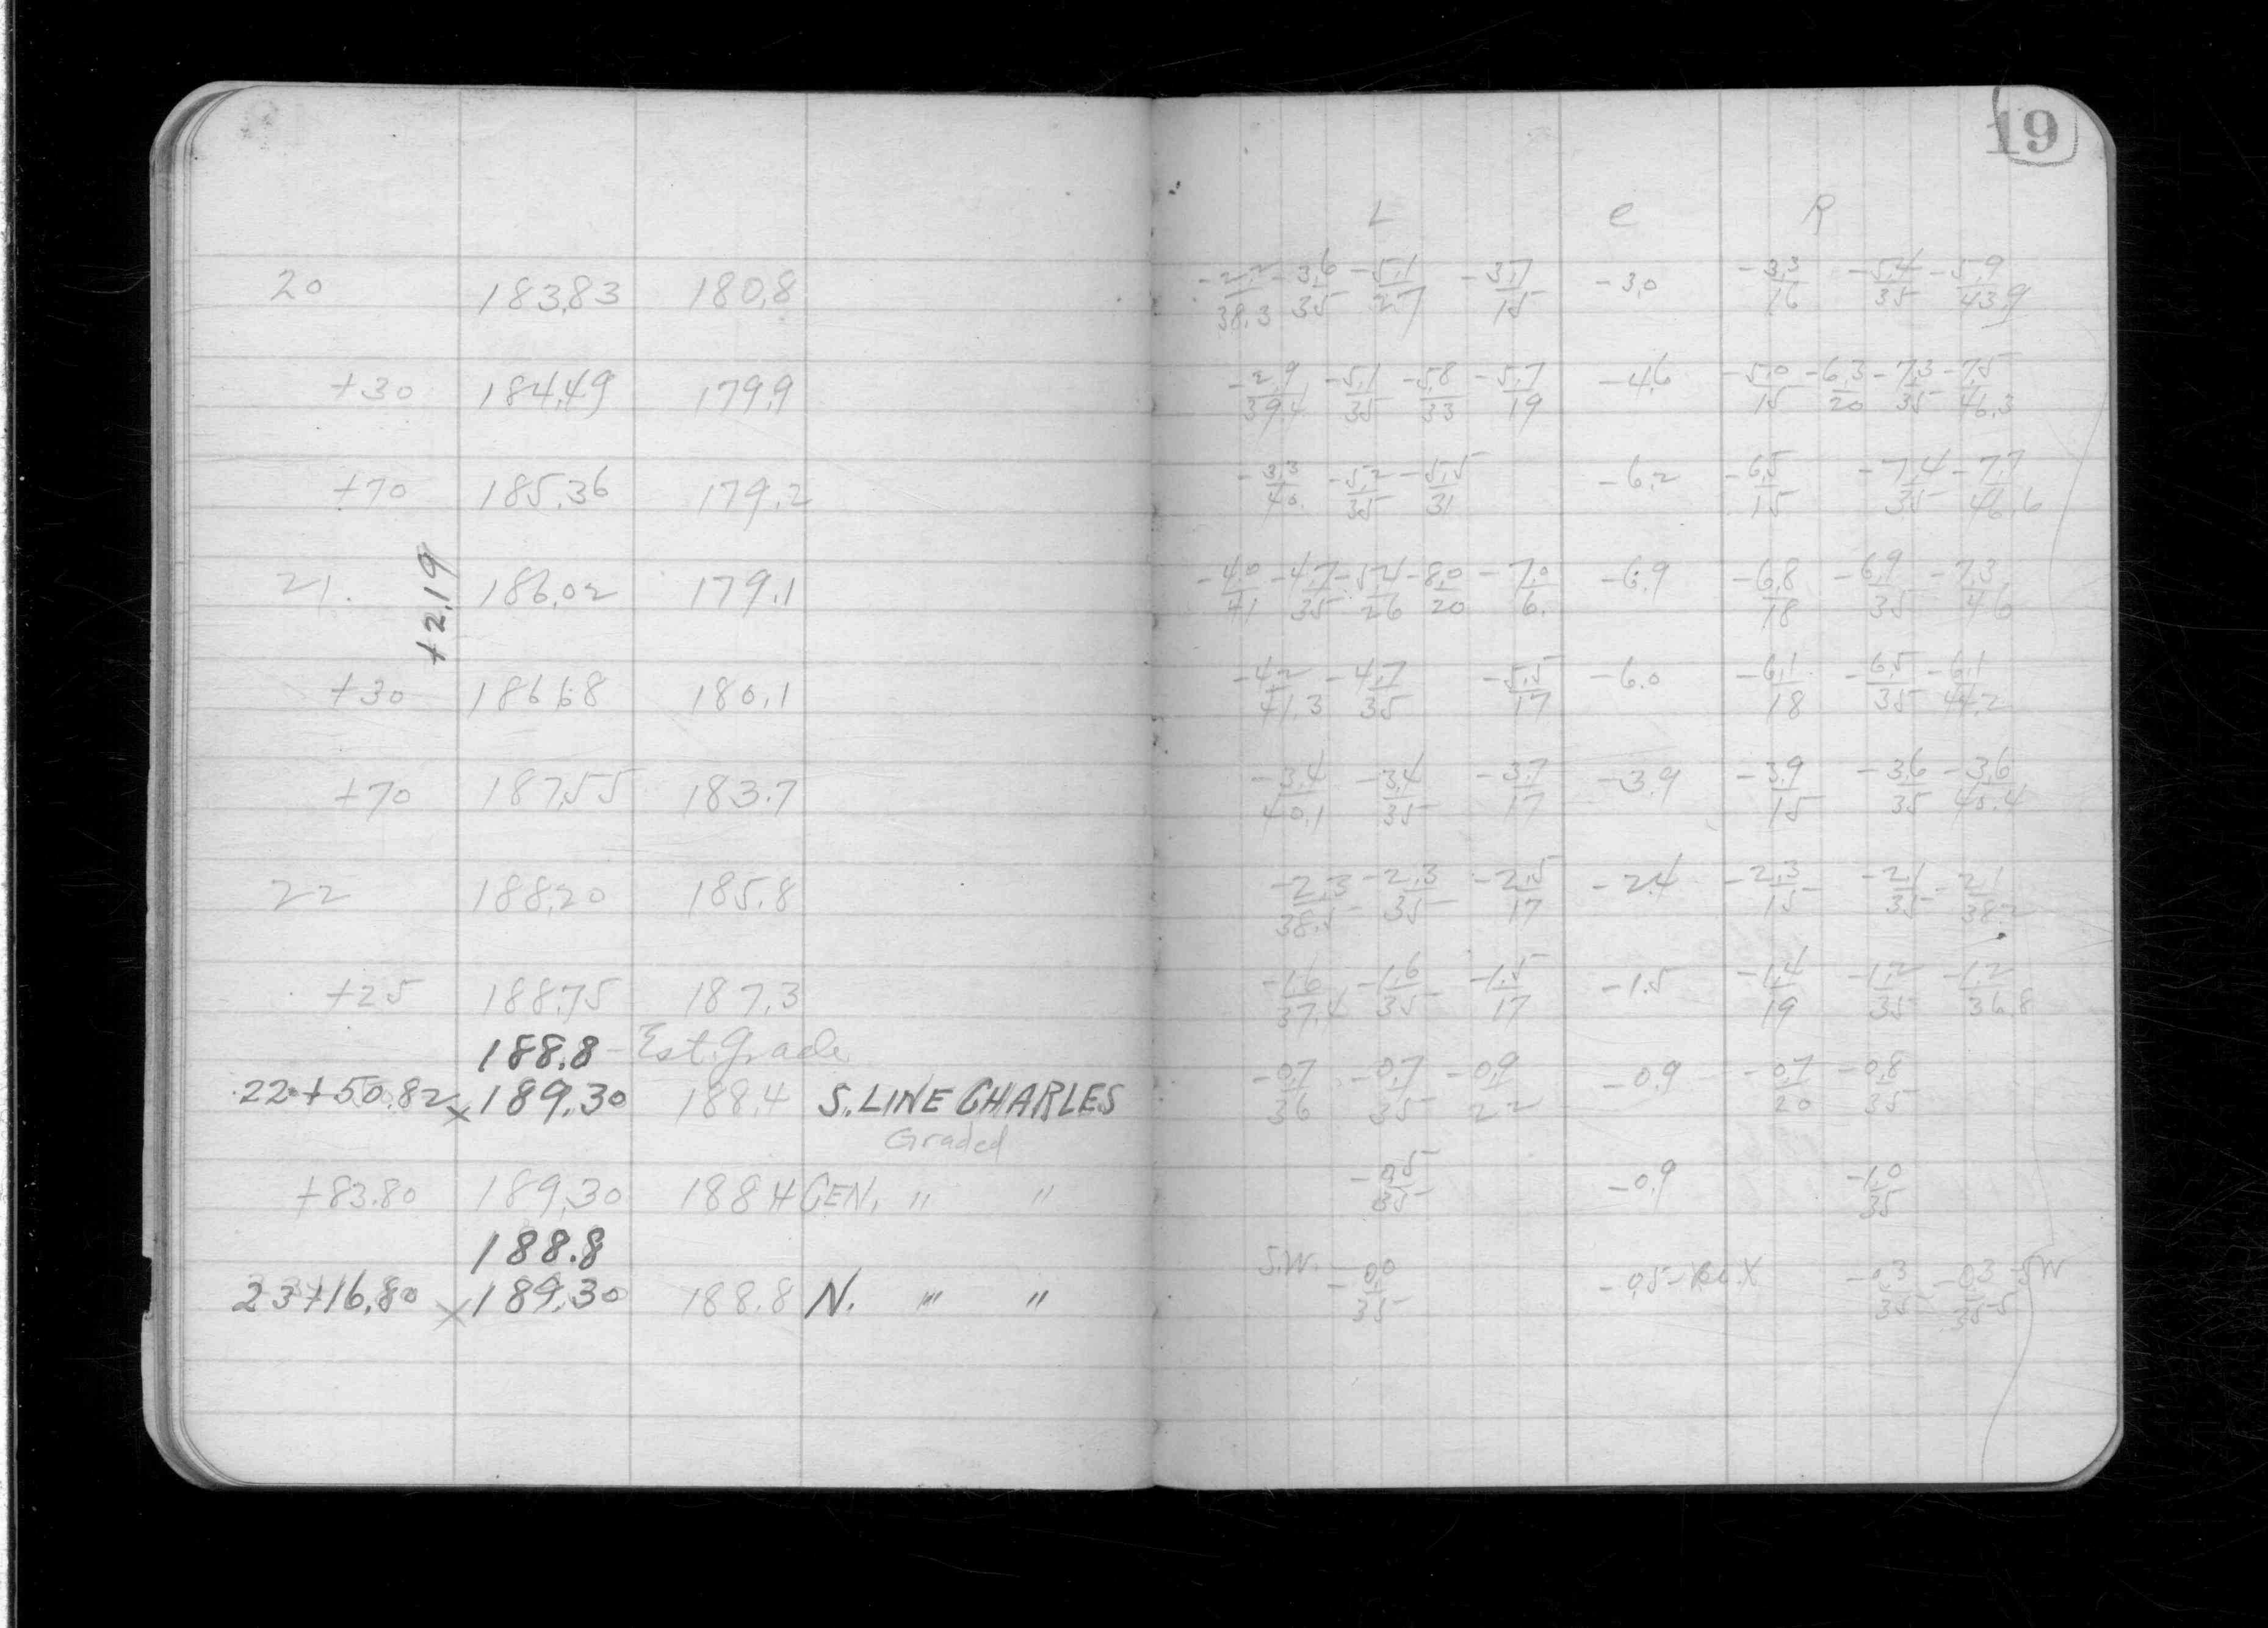 19
L C R
20 183.83 180.8 -2.2/38.3 -3.6/35 -5.1/27 -3.7/15 -3.0 -3.3/16 -5.4/35 -5.9/43.9
+30 184.49 179.9 -2.9/39.4 -5.1/35 -5.8/33 -5.7/19 -4.6 -5.0/15 -6.3/20 -7.3/35 -7.5/46.3
+70 185.36 179.2 -3.3/40. -5.2/35 -5.5/31 -6.2 -6.5/15 -7.4/35 -7.7/46.6
+2.19
21. 186.02 179.1 -4.0/41 -4.7/35 -5.4/26 -8.0/20 -7.0/6. -6.9 -6.8/18 -6.9/35 -7.3/46
+30 186.68 180.1 -4.2/41.3 -4.7/35 -5.5/17 -6.0 -6.1/18 -6.5/35 -6.1/44.2
+70 187.55 183.7 -3.4/40.1 -3.4/35 -3.7/17 -3.9 -3.9/15 -3.6/35 -3.6/40.4
22 188.20 185.8 -2.3/38.5 -2.3/35 -2.5/17 -2.4 -2.3/15 -2.1/35 -2.1/38.2
+25 188.75 187.3 -1.6/37.4 -1.6/35 -1.5/17 -1.5 -1.4/19 -1.2/35 -1.2/36.8
188.8 - Est. Grade
22+50.82 x 189.30 188.4 S. LINE CHARLES -0.7/36 -0.7/35 -0.9/22 -0.9 -0.7/20 -0.8/35
Graded
+83.80 189.30 188.4 CEN. " " -0.5/35 -0.9 -1.0/35
188.8
23+16.80 x 189.30 188.8 N. " " S.W. -0.0/35 -0.5 -0.3/35 -0.3/35.5 SW